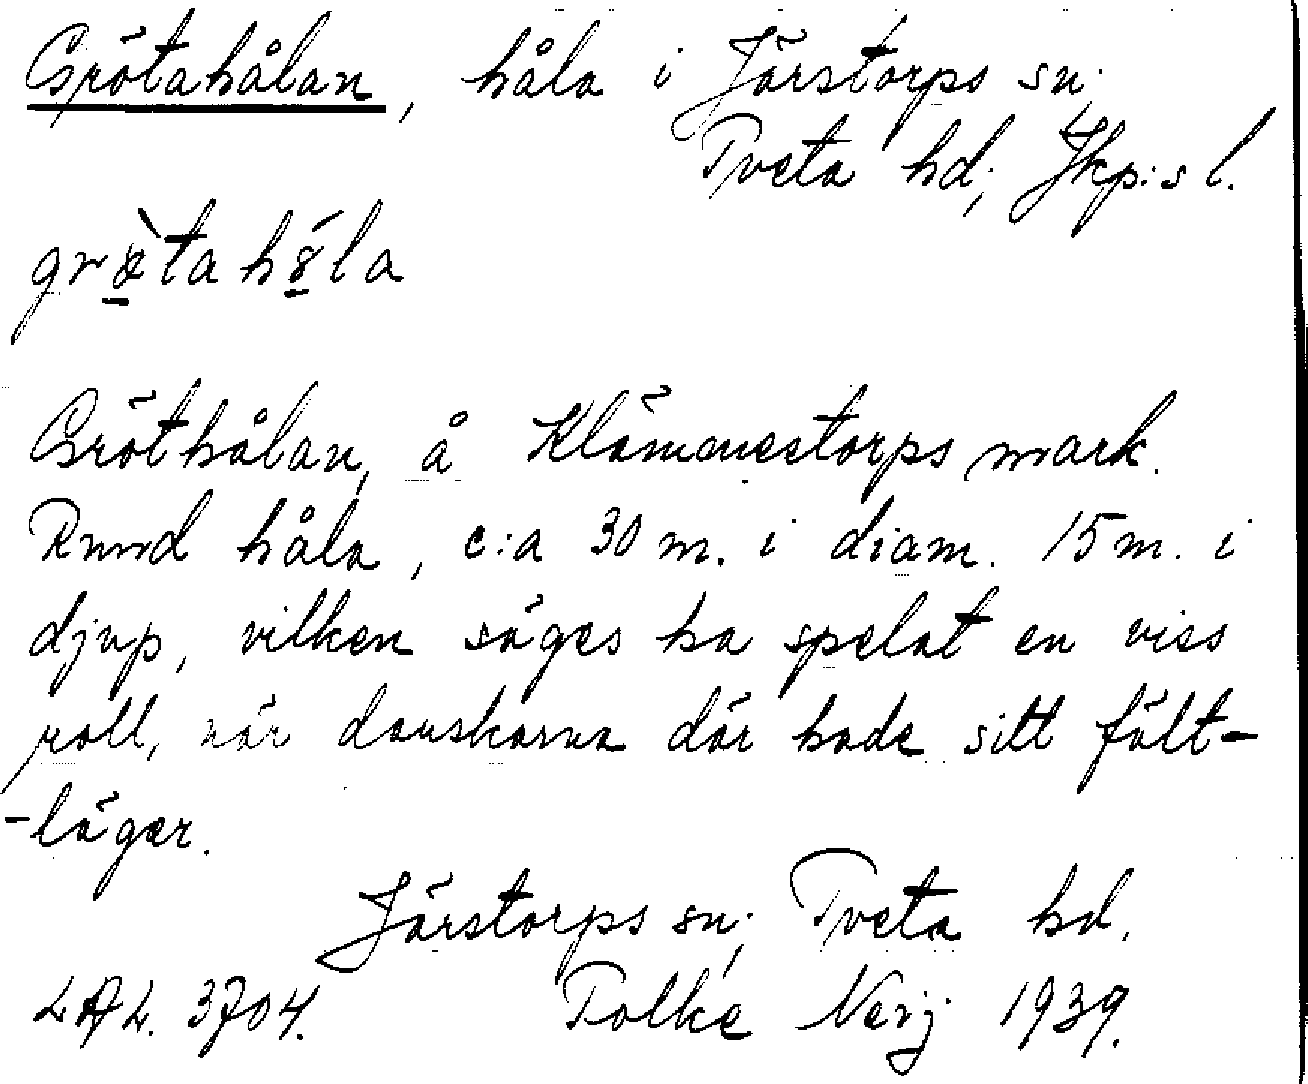 Grötahålan, håla i Järstorps sn;
Tveta hd; Jkp:s l.
grø̀tahǻla
Gröthålan, å Klämmestorps mark.
Rund håla, c:a 30 m. i diam. 15 m. i
djup, vilken säges ha spelat en viss
roll, när danskarna där hade sitt fält-
-läger.
Järstorps sn; Tveta hd.
LAL. 3704. Folke Nerj 1939.